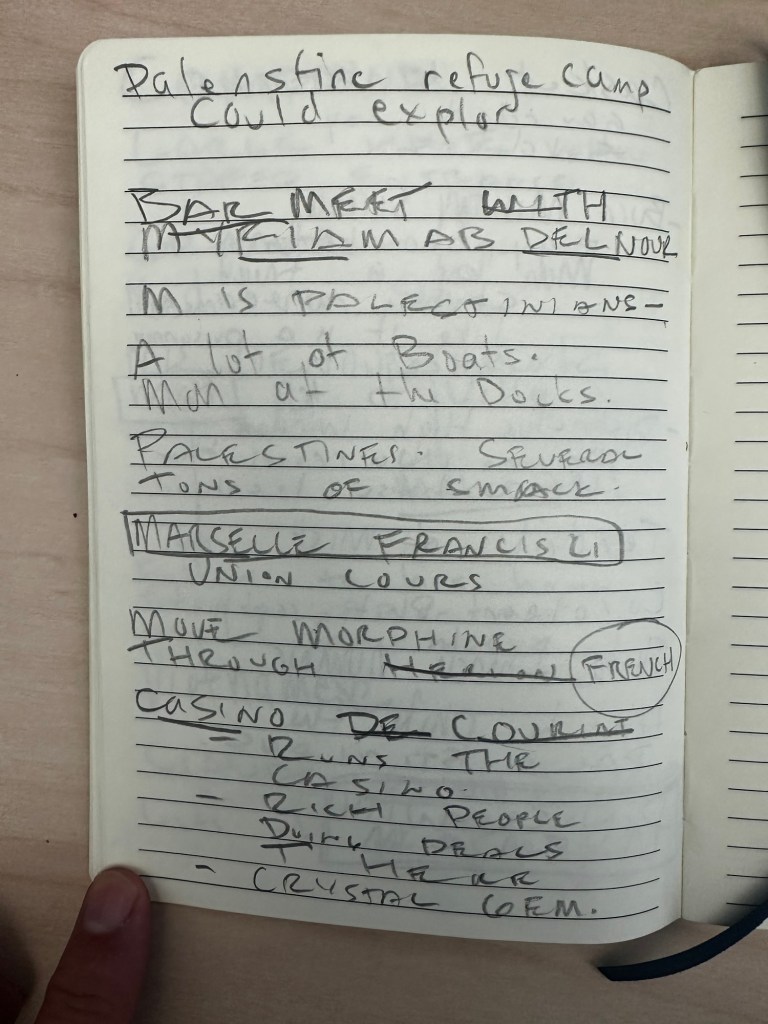 Palenstine refuge camp
Could explor
BAR MEET WITH
MYRIAM ABDELNOUR
M IS PALESTINIANS-
A lot of Boats.
Man at the Docks.
PALESTINES. SEVERAL
TONS OF SMACK.
MARSELLE FRANCISLI
UNION COURS
MOVE MORPHINE
THROUGH FRENCH
CASINO DE
- RUNS THE
CASINO.
- RICH PEOPLE
DOING DEALS
- CRYSTAL GEM.